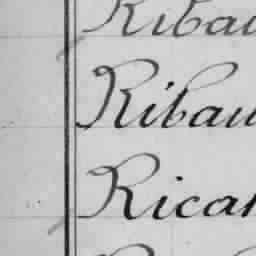 Ribau
Ribau
Rica